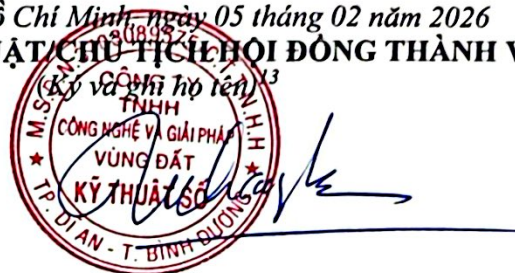 Chí Minh, ngày 05 tháng 02 năm 2026
CHỦ TỊCH HỘI ĐỒNG THÀNH V
(Ký và ghi họ tên)13
M.S.
C.T.T.N.H.H
CÔNG TY
TNHH
CÔNG NGHỆ VÀ GIẢI PHÁP
VÙNG ĐẤT
KỸ THUẬT SỐ
TP. DĨ AN - T. BÌNH DƯƠNG